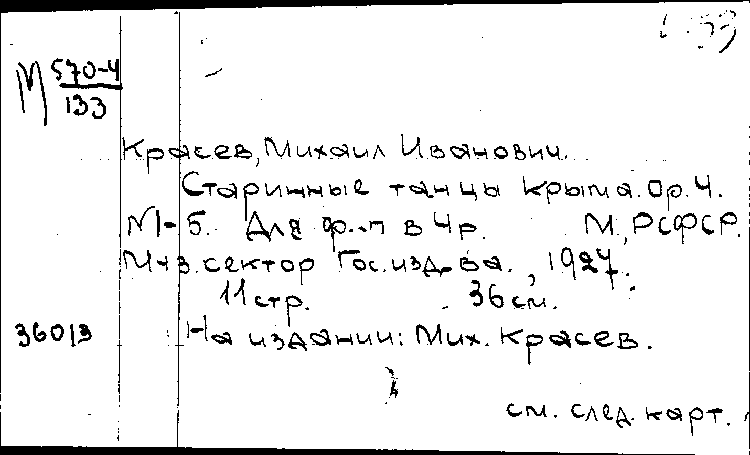 М 570-4
133
Красев, Михаил Иванович.
Старинные танцы Крыма. Op. 4.
N1-5. Для ф.-п в 4 р. М, РСФСР.
Муз. сектор Гос. изд-ва., 1927.
11 стр. 36 см.
36013 На издании: Мих. Красев.
см. след. карт.